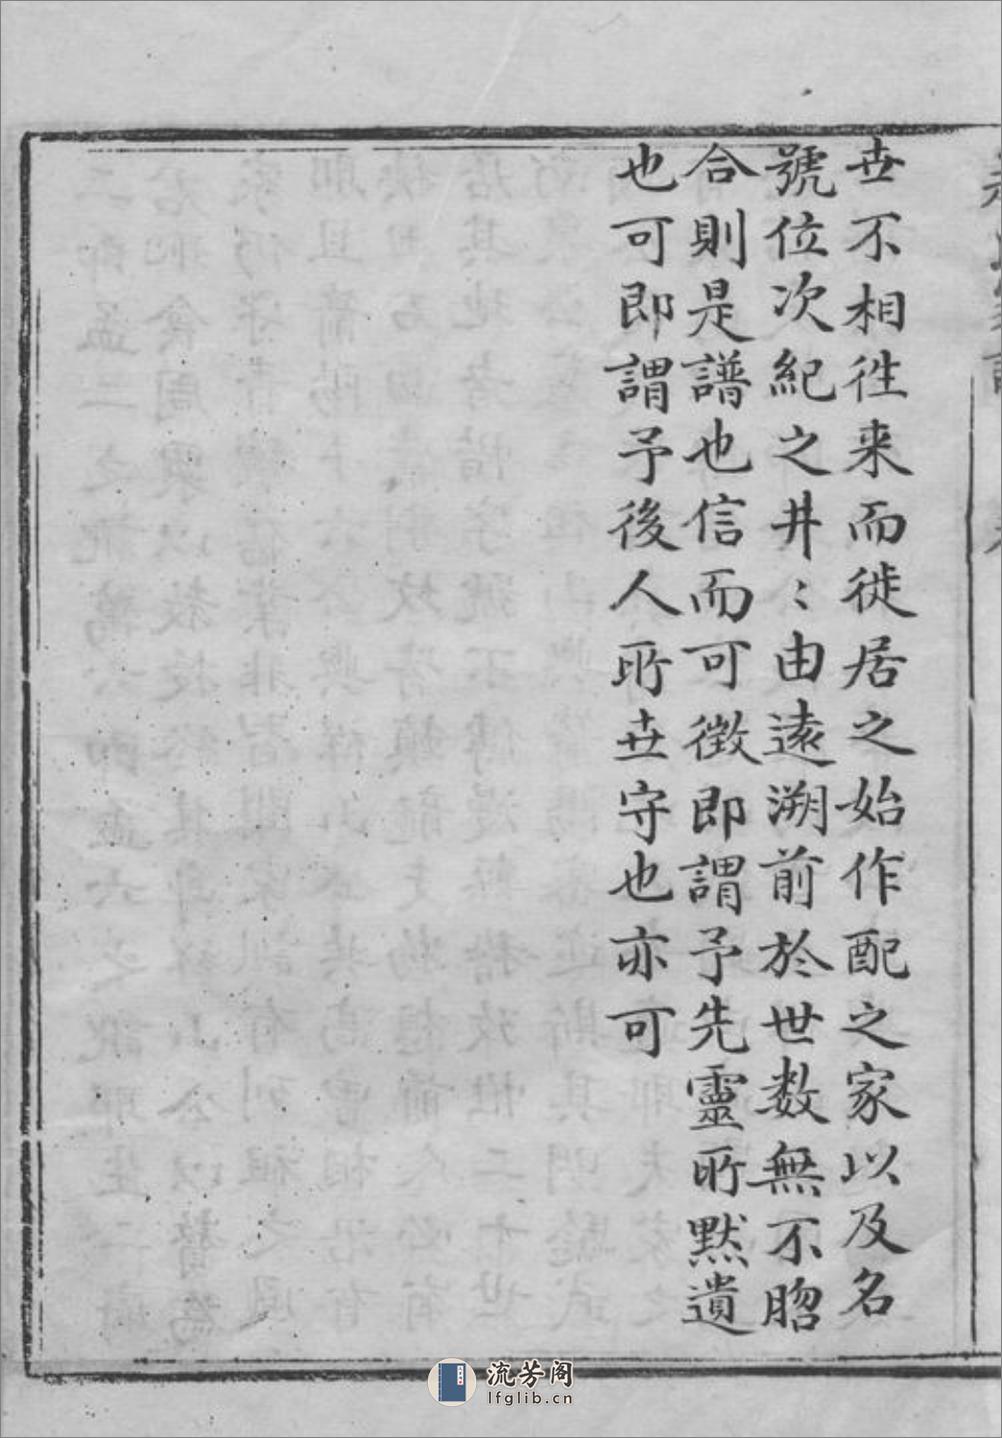 世不相徃来而徙居之始作配之家以及名
號位次紀之井〻由遠溯前於世数無不脗
合則是譜也信而可徴即謂予先靈所默遺
也可即謂予後人所世守也亦可
流芳阁
lfglib.cn